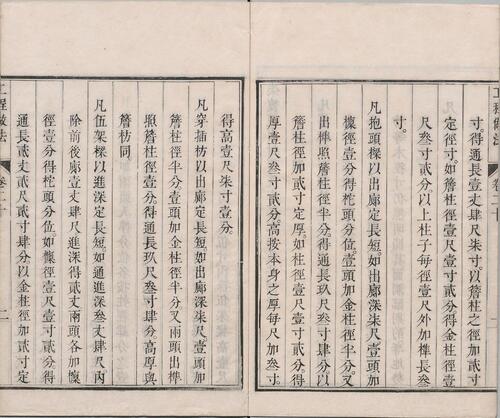 寸。得通長壹丈肆尺柒寸。以簷柱徑加貳寸
定徑寸。如簷柱徑壹尺壹寸貳分。得金柱徑壹
尺叁寸貳分。以上柱子每徑壹尺外加榫長叁
寸。
凡抱頭樑以出廊定長短。如出廊深柒尺。壹頭加
檁徑壹分。得柁頭分位。壹頭加金柱徑半分。又
出榫照簷柱徑半分。得通長玖尺叁寸肆分。以
簷柱徑加貳寸定厚。如柱徑壹尺壹寸貳分。得
厚壹尺叁寸貳分。高按本身之厚每尺加叁寸。
得高壹尺柒寸壹分。
凡穿插枋以出廊定長短。如出廊深柒尺。壹頭加
簷柱徑半分。壹頭加金柱徑半分。又兩頭出榫
照簷柱徑壹分。得通長玖尺叁寸肆分。高厚與
簷枋同。
凡伍架樑以進深定長短。如通進深叁丈肆尺。內
除前後廊壹丈肆尺。進深得貳丈。兩頭各加檁
徑壹分。得柁頭分位。如檁徑壹尺壹寸貳分。得
通長貳丈貳尺貳寸肆分。以金柱徑加貳寸定
工程做法 卷二十